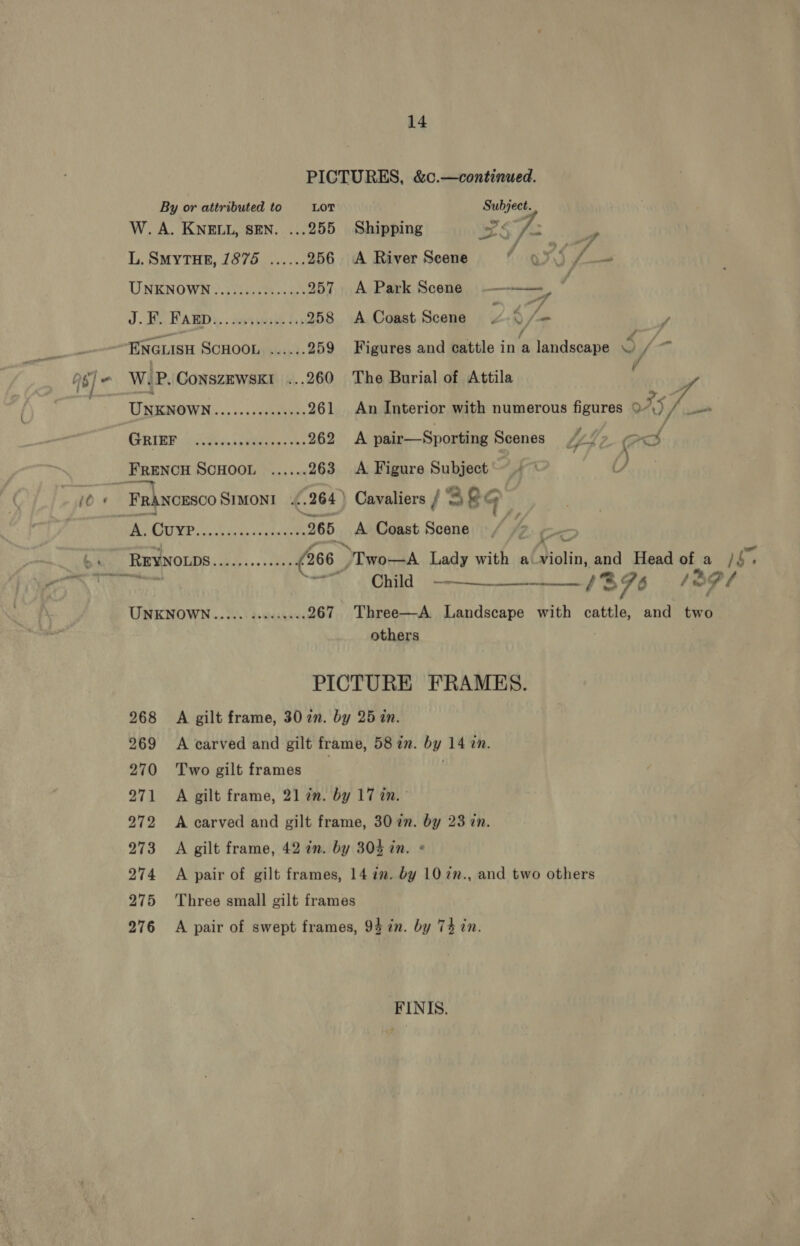 14
PICTURES, &c.—continued.
By or attributed to LOT Subject.
W. A. KNELL, SEN. ...255 Shipping
L. SMYTHE, 1875 ......256 A River Scene
UNKNOWN...............257 A Park Scene
J. F. FAED...............258 A Coast Scene
ENGLISH SCHOOL ......259 Figures and cattle in a landscape
W. P. CONSZEWSKI ...260 The Burial of Attila
UNKNOWN...............261 An Interior with numerous figures
GRIEF ...............262 A pair—Sporting Scenes
FRENCH SCHOOL ......263 A Figure Subject
FRANCESCO SIMONI ...264 Cavaliers
A. CUYP..................265 A Coast Scene
REYNOLDS...............266 Two—A Lady with a violin, and Head of a
Child
UNKNOWN...............267 Three—A Landscape with cattle, and two
others
PICTURE FRAMES.
268 A gilt frame, 30 in. by 25 in.
269 A carved and gilt frame, 58 in. by 14 in.
270 Two gilt frames
271 A gilt frame, 21 in. by 17 in.
272 A carved and gilt frame, 30 in. by 23 in.
273 A gilt frame, 42 in. by 30½ in.
274 A pair of gilt frames, 14 in. by 10 in., and two others
275 Three small gilt frames
276 A pair of swept frames, 9½ in. by 7½ in.
FINIS.